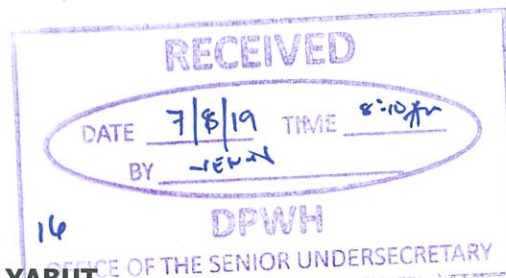 RECEIVED
DATE 7/8/19 TIME 8:10 Am
BY
16
DPWH
YABUT OFFICE OF THE SENIOR UNDERSECRETARY